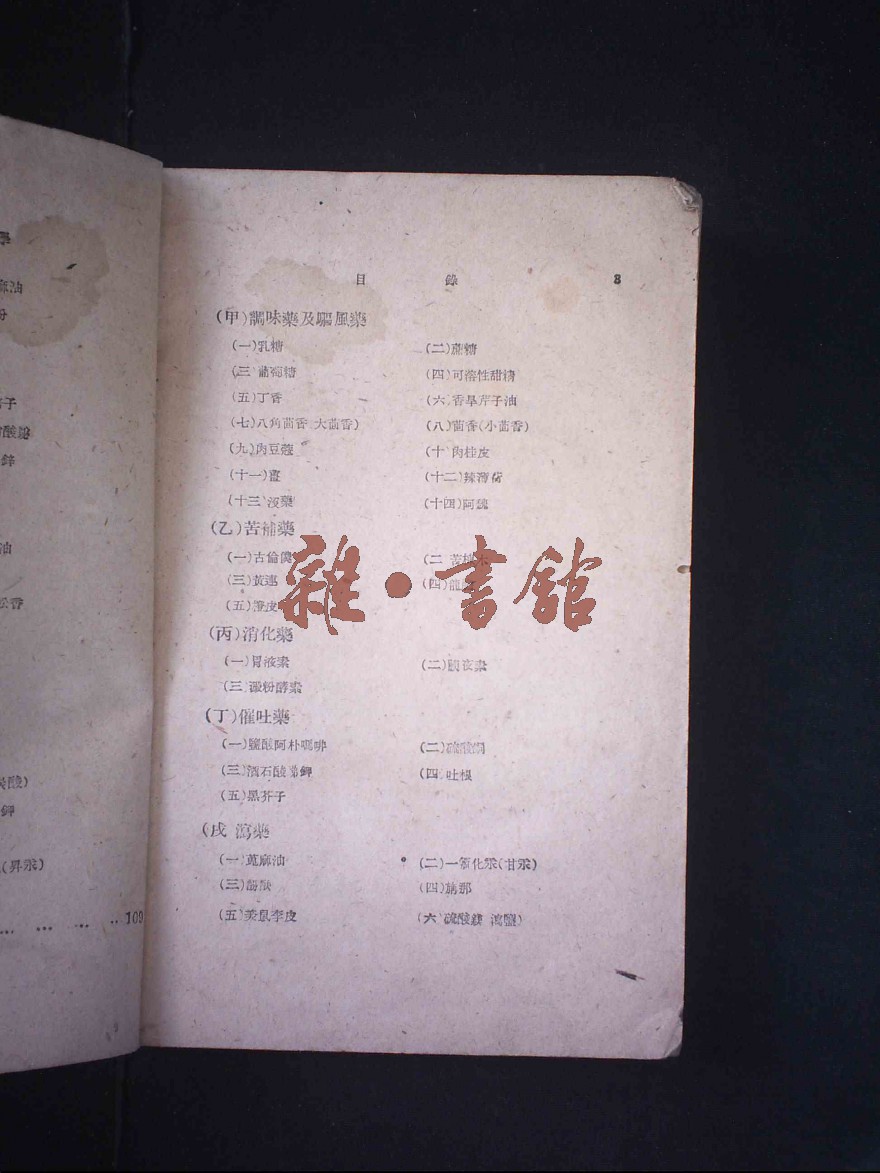 學
麻油
粉
子
酸
鋅
油
松香
酸)
鉀
(昇汞)
… … … ‥109
目 錄 3
(甲)調味藥及驅風藥
(一)乳糖 (二)蔗糖
(三 葡萄糖 (四)可溶性甜精
(五)丁香 (六 香旱芹子油
(七)八角茴香 大茴香) (八)茴香(小茴香)
(九)肉豆蔻 (十 肉桂皮
(十一)薑 (十二)辣薄荷
(十三 沒藥 (十四)阿魏
(乙)苦補藥
(一)古倫僕 (二 苦木
(三)黃連 (四)龍膽
(五)橙皮
雜·書館
(丙)消化藥
(一)胃液素 (二)胰液素
(三 澱粉酵素
(丁)催吐藥
(一)鹽酸阿朴嗎啡 (二)硫酸銅
(三)酒石酸銻鉀 (四 吐根
(五)黑芥子
(戌 瀉藥
(一)蓖麻油 (二)一氯化汞(甘汞)
(三) (四)旃那
(五)美鼠李皮 (六 硫酸鎂 瀉鹽)